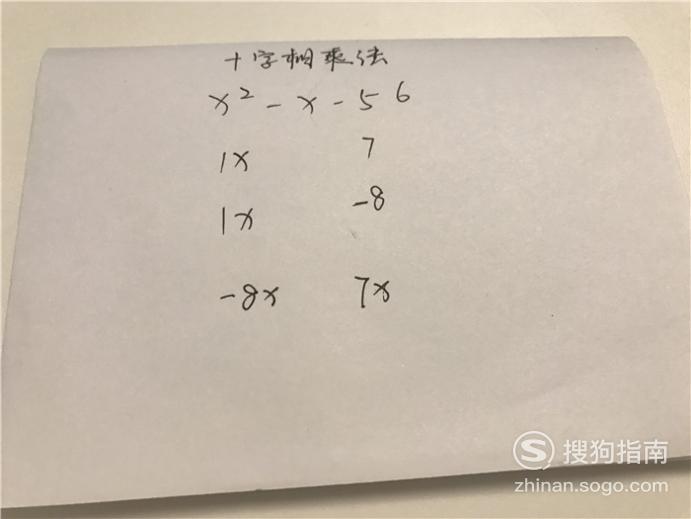 十字相乘法
x² - x - 56
1x 7
1x -8
-8x 7x
S 搜狗指南
zhinan.sogo.com